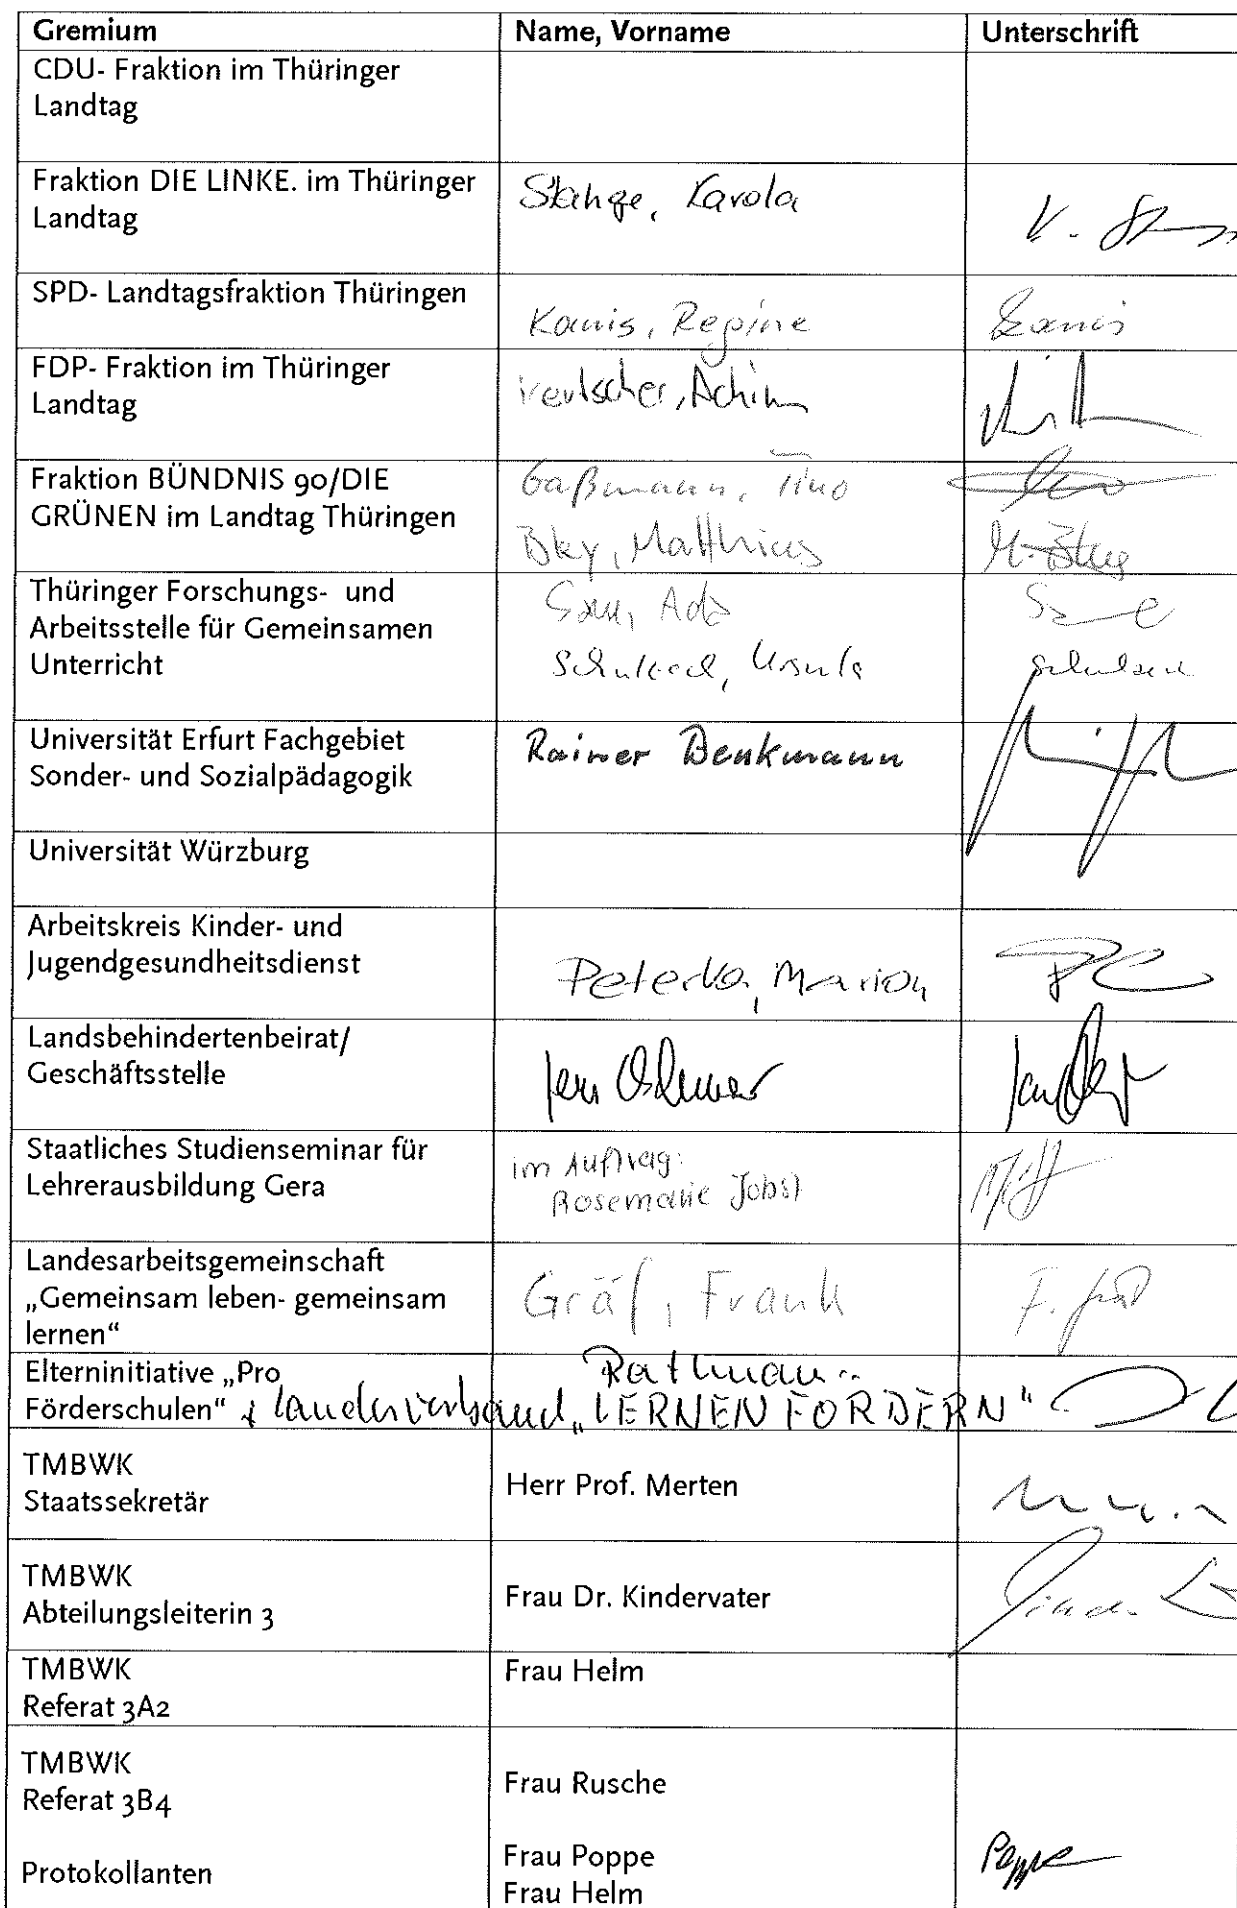 Gremium Name, Vorname Unterschrift
CDU- Fraktion im Thüringer
Landtag
Fraktion DIE LINKE. im Thüringer
Landtag
Stange, Karola
K. St
SPD- Landtagsfraktion Thüringen
Kanis, Regine
Kanis
FDP- Fraktion im Thüringer
Landtag
Achim
Fraktion BÜNDNIS 90/DIE
GRÜNEN im Landtag Thüringen
Gaßmann, Tino
Matthias
Thüringer Forschungs- und
Arbeitsstelle für Gemeinsamen
Unterricht
Ursula
Universität Erfurt Fachgebiet
Sonder- und Sozialpädagogik
Rainer Benkmann
Universität Würzburg
Arbeitskreis Kinder- und
Jugendgesundheitsdienst
Marion
Landsbehindertenbeirat/
Geschäftsstelle
Staatliches Studienseminar für
Lehrerausbildung Gera
im Auftrag:
Rosemarie Jobst
Landesarbeitsgemeinschaft
„Gemeinsam leben- gemeinsam
lernen“
Gräf, Frank
F. Gräf
Elterninitiative „Pro
Förderschulen“
Rathmann
+ Landesverband „LERNEN FÖRDERN"
TMBWK
Staatssekretär
Herr Prof. Merten
TMBWK
Abteilungsleiterin 3
Frau Dr. Kindervater
TMBWK
Referat 3A2
Frau Helm
TMBWK
Referat 3B4
Frau Rusche
Protokollanten
Frau Poppe
Frau Helm
Poppe